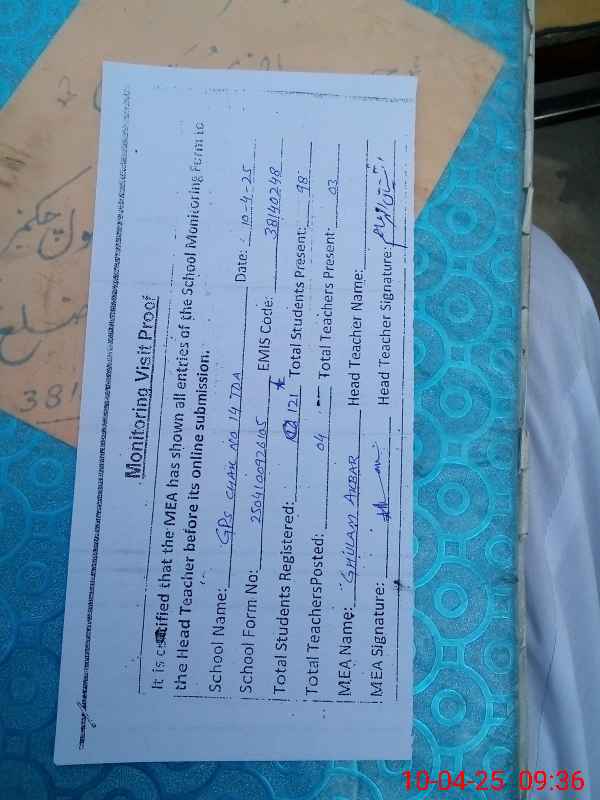 Monitoring Visit Proof
It is certified that the MEA has shown all entries of the School Monitoring Form to
the Head Teacher before its online submission.
School Name: GPS CHAK NO 14 TDA Date: 10-4-25
School Form No: 2504100926105 EMIS Code: 38140248
Total Students Registered: 121 Total Students Present: 98
Total TeachersPosted: 04 Total Teachers Present: 03
MEA Name: GHULAM AKBAR Head Teacher Name:
MEA Signature: Head Teacher Signature:
ضلع
381
10-04-25 09:36